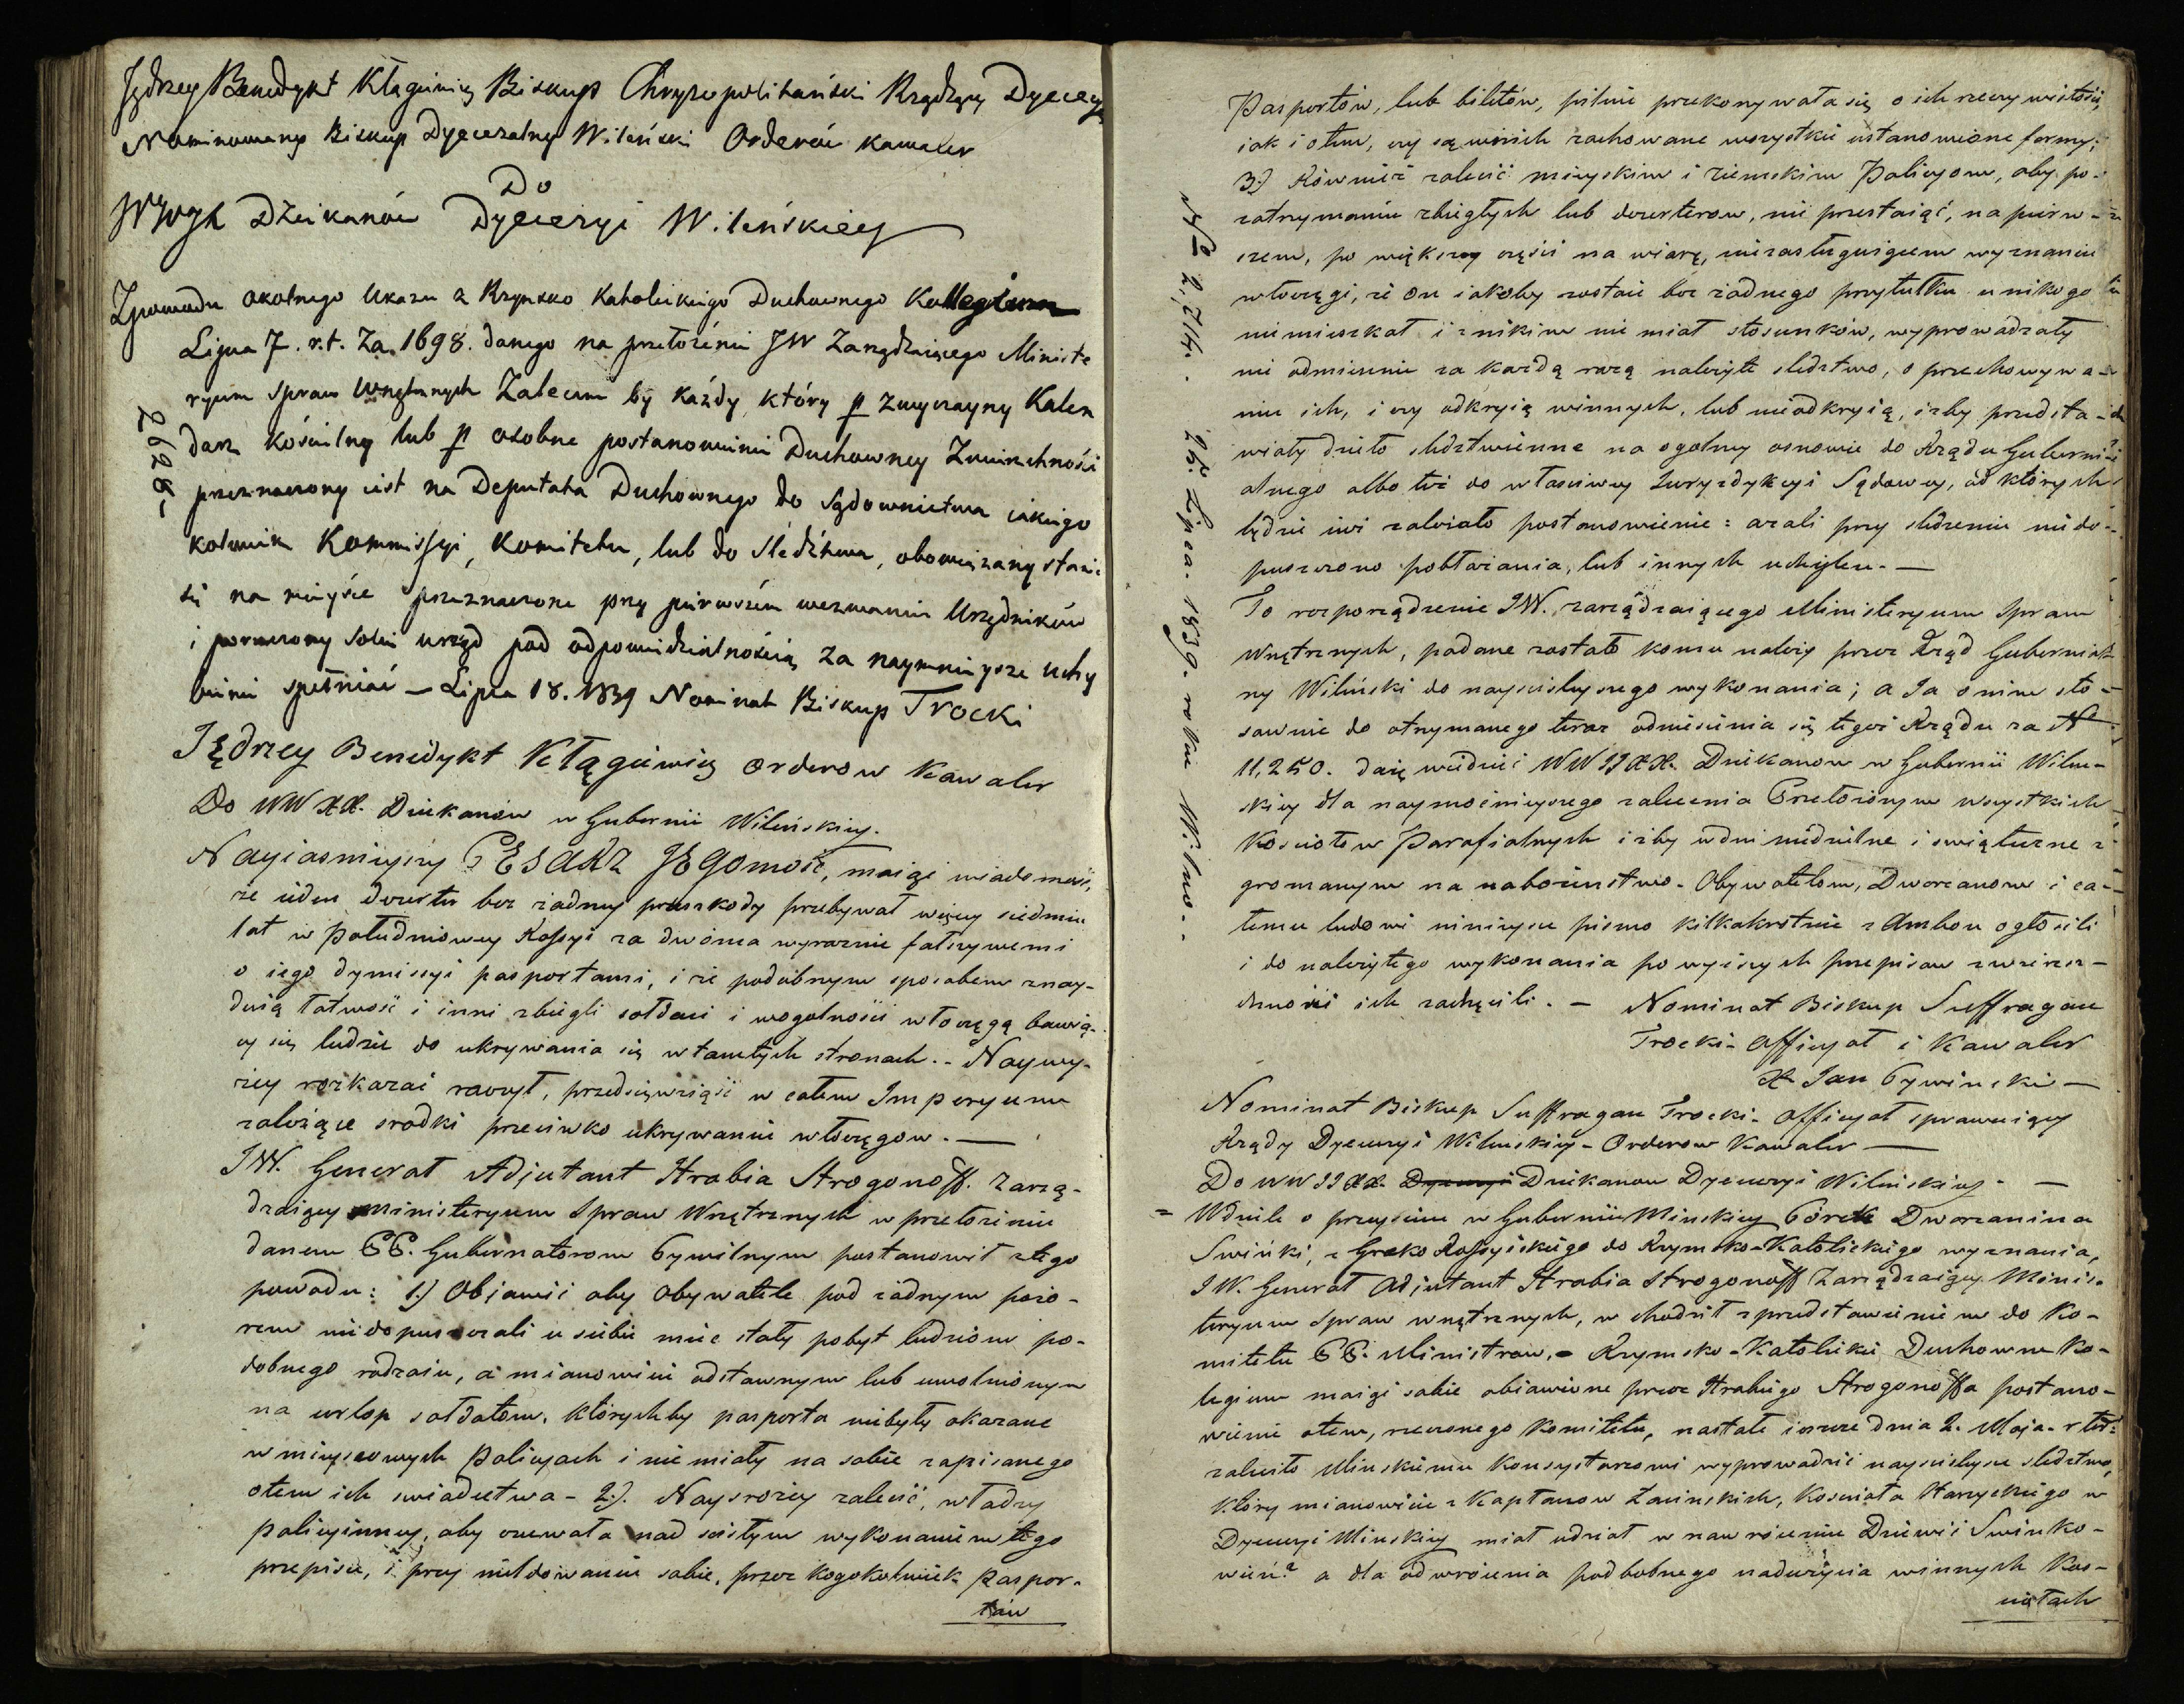 Jędrzey Benedykt Kłągiewicz Biskup Chryzopolitański Rządzący Dyecezyą
Nominowany Biskup Dyecezalny Wileński Orderów kawaler
Do
Dziekanów Dyecezyi Wileńskiey
Zpowodu okolnego Ukazu z Rzymsko Katholickiego Duchownego Kollegium
Lipca 7. r.t. Za. 1698. danego na przełożenie JW Zarządzaiącego Ministe
ryum Spraw Wnętrznych Zalecam by każdy, który p zwyczayny Kalen
darz kościelny lub p osobne postanowienie Duchowney Zwierzchności
przeznaczony iest na Deputata Duchownego do Sądownictwa iakiego
kolwiek Kommissyi, Komitetu, lub do Śledztwa, obowiązany stawić
się na mieysce przeznaczone przy pierwszém wezwaniu Urzędników
i poruczony Sobie urząd pod odpowiedzialnością za naymnieysze uchy
bienie spełniać – Lipca 18. 1839 Nominat Biskup Trocki
2628-
Jędrzey Benedykt Kłągiewicz Orderow Kawaler
Do WW XX. Dziekanów w Gubernii Wileńskiey.
Nayiasnieyszy CESARZ JEGOMOŚĆ, maiąc wiadomość,
że ieden dezerter bez żadney przeszkody przebywał więcey siedmiu
lat w Południowey Rossyi za dwóma wyraznie fałszywemi
o iego dymissyi pasportami, i że podobnym sposobem znay-
duią łatwość i inni zbiegli sołdaci i wogolności włoczęgą bawią-
cy się ludzie do ukrywania się w tamtych stronach. – Naywy-
żey rozkazać raczył, przedsięwziąść w całem Imperyum
należące srodki przeciwko ukrywaniu włoczęgow. —
JW. Generał Adjutant Hrabia Strogonoff. Zarzą-
dzaiący Ministeryum Spraw Wnętrznych w przełożeniu
danem CC. Gubernatorom Cywilnym postanowił ztego
powodu: 1.) Objawić aby Obywatele pod żadnym pozo-
rem niedopuszczali u siebie mieć stały pobyt ludziom po-
dobnego rodzaiu, a mianowicie odstawnym lub uwolnionym
na urlop sołdatom, którychby pasporta niebyły okazane
w mieyscowych Policyach i nie miały na sobie zapisanego
otem ich swiadectwa – 2.). Naysrożey zalecić, władzy
policyiney, aby czuwała nad scisłym wykonaniem tego
przepisu, i przy meldowaniu sobie, przez kogokolwiek paspor-
tów
Pasportów, lub biletów, pilnie przekonywała się o ich rzeczywistości,
iak i otem, czy są wnich zachowane wszystkie ustanowione formy;
3.) Również zalecić mieyskim i ziemskim Policyom, aby po
zatrzymaniu zbiegłych lub dezerterow, nie przestaiąc, na pierw-
szem, po większey części na wiarę, niezasługuiącem wyznaniu
włoczęgi, że on iakoby zostaie bez żadnego przytułku u nikogo
niemieszkał i znikim nie miał stosunków, wyprowadzały
nie odmiennie za każdą razą należyte sledztwo, o przechowywa-
niu ich, i czy odkryią winnych, lub nieodkryią, iżby przedsta-
wiały dzieło sledztwienne na ogolney osnowie do Rządu Gubernii
alnego albo też do własciwey Juryzdykcyi Sądowey, od których
będzie iuż zależało postanowienie: azali przy sledzeniu niedo-
puszczono pobłażania, lub innych uchyleń. —
To rozporządzenie JW. zarządzaiącego Ministeryum Spraw
Wnętrznych, podane zostało komu należy przez Rząd Gubernial
ny Wileński do nayscisleyszego wykonania; a Ja onim sto-
sownie do otrzymanego teraz odniesienia się tegoż Rządu za N
11,250. daię wiedzieć WW JJ XX. Dziekanow w Gubernii Wilen-
skiey dla naymocnieyszego zalecenia Przełożonym wszystkich
Kosciołow Parafialnych iżby wdni niedzielne i swiąteczne z
gromanym na nabożeństwo. Obywatelom, Dworzanom i ca-
łemu ludowi ninieysze pismo kilkakrotnie z Ambon ogłosili
i do należytego wykonania powyższych przepisow zwierz-
chności ich zachęcili. – Nominat Biskup Suffragan
Trocki – Officyał i Kawaler
X Jan Cywinski —
N 2,714. 25. Lipca. 1839. roku Wilno.
Nominat Biskup Suffragan Trocki. Officyał sprawuiący
Rządy Dyecezyi Wilenskiey – Orderow Kawaler —
Do WW JJ XX. Dyecezyi Dziekanow Dyecezyi Wilenskiey. —
Wdziele o przeyściu w Gubernii Minskiey Córek Dworzanina
Swińki, z Greko Rossyiskiego do Rzymsko-Katolickiego wyznania,
JW. Generał Adjutant Hrabia Strogonoff Zarządzaiący Minis-
teryum Spraw wnętrznych, w chodził z przedstawieniem do Ko-
mitetu CC. Ministrow. – Rzymsko-Katolickie Duchowne Ko-
legium maiąc sobie obiawione przez Hrabiego Strogonoffa postano-
wienie otem, rzeczonego Komitetu, nastałe ieszcze dnia 2. Maja
zaleciło Minskiemu Konsystorzowi wyprowadzić nayscisleysze sledztwo,
który mianowicie z Kapłanow Łacinskich, Koscioła w
Dyecezyi Minskiey miał udział w nawróceniu Dziewic Swinko-
wień? a dla odwrócenia podbobnego nadużycia winnych Kos-
ciołach